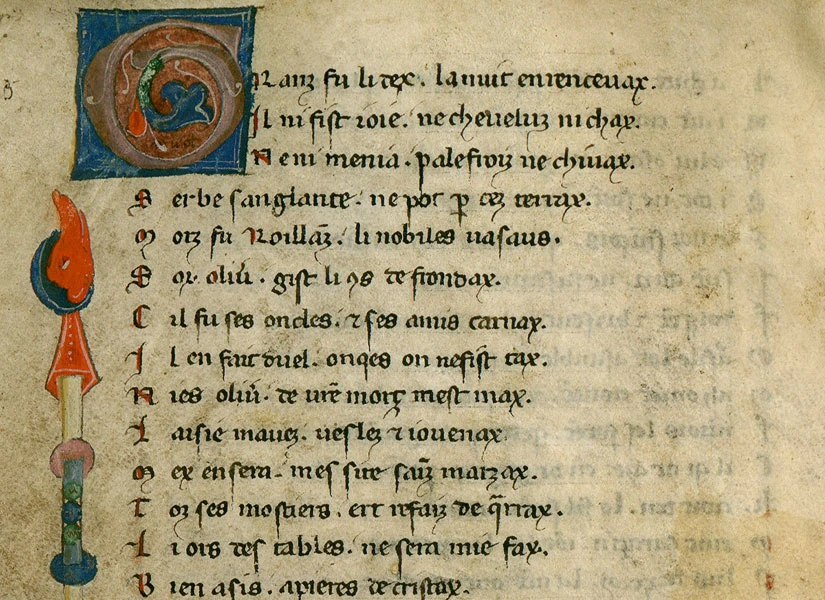 Granz fu li dex. la nuit en rencevax.
Il ni fist ioie. ne cheveluz ni chax.
Ne ni menia. palefroiz ne chivax.
Serbe sanglante. ne por p cez terrax.
Morz fu Rollanz. li nobiles uasaus.
Sor oliu. gist li qs de frondax.
Cil fu ses oncles. ⁊ ses amis carnax.
Il en fait duel. onqes on ne fist tax.
Nies oliu. de ure morz mest max.
Laisie mauez. ueslez ⁊ iouenax.
Mex en sera. mes sire sainz marzax.
Toz ses mostiers. ert refaiz de qrrax.
Li ors des tables. ne sera mie fax.
Bien asis. a pieres de cristax.